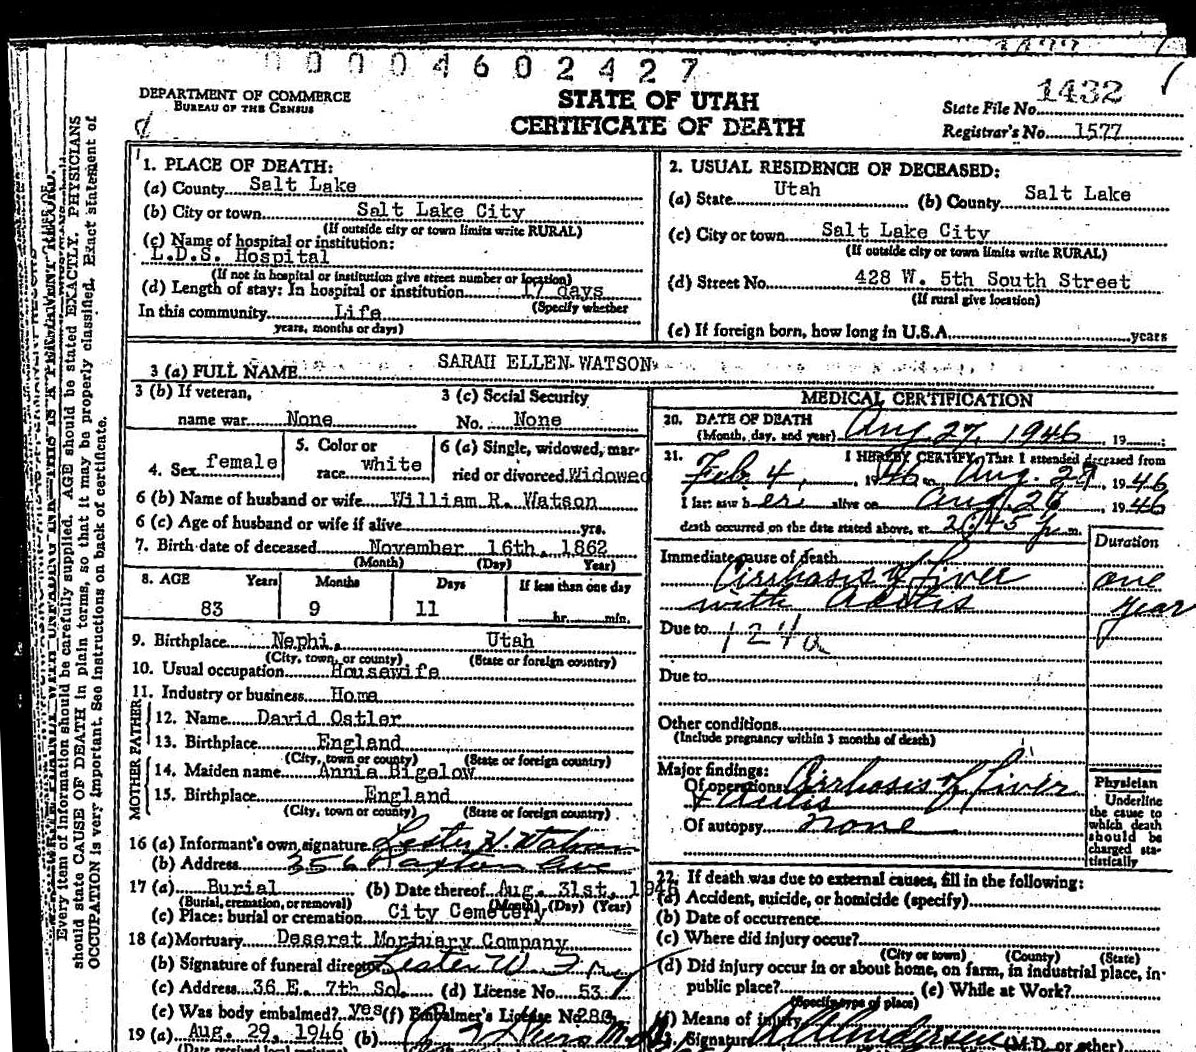 00004602427
DEPARTMENT OF COMMERCE
BUREAU OF THE CENSUS
STATE OF UTAH
CERTIFICATE OF DEATH
State File No. 1432
Registrar's No. 1577
Every item of information should be carefully supplied. AGE should be stated EXACTLY. PHYSICIANS
should state CAUSE OF DEATH in plain terms, so that it may be properly classified. Exact statement of
OCCUPATION is very important. See instructions on back of certificate.
1. PLACE OF DEATH:
(a) County Salt Lake
(b) City or town Salt Lake City
(If outside city or town limits write RURAL)
(c) Name of hospital or institution:
L.D.S. Hospital
(If not in hospital or institution give street number or location)
(d) Length of stay: In hospital or institution 17 days
(Specify whether
In this community Life
years, months or days)
2. USUAL RESIDENCE OF DECEASED:
(a) State Utah (b) County Salt Lake
(c) City or town Salt Lake City
(If outside city or town limits write RURAL)
(d) Street No. 428 W. 5th South Street
(If rural give location)
(e) If foreign born, how long in U.S.A. years
3 (a) FULL NAME SARAH ELLEN WATSON
3 (b) If veteran,
name war None
3 (c) Social Security
No. None
4. Sex female
5. Color or
race white
6 (a) Single, widowed, mar-
ried or divorced Widowed
6 (b) Name of husband or wife William R. Watson
6 (c) Age of husband or wife if alive yrs.
7. Birth date of deceased November 16th, 1862
(Month) (Day) Year)
8. AGE Years Months Days If less than one day
83 9 11 hr. min.
9. Birthplace Nephi, Utah
(City, town, or county) (State or foreign country)
10. Usual occupation Housewife
11. Industry or business Home
FATHER
12. Name David Ostler
13. Birthplace England
(City, town or county) (State or foreign country)
MOTHER
14. Maiden name Annie Bigelow
15. Birthplace England
(City, town or county) (State or foreign country)
16 (a) Informant's own signature Lester H. Watson
(b) Address 256 Paxton Ave
17 (a) Burial (b) Date thereof Aug. 31st, 1946
(Burial, cremation, or removal) (Month) (Day) (Year)
(c) Place: burial or cremation City Cemetery
18 (a) Mortuary Deseret Mortuary Company
(b) Signature of funeral director Lester W.
(c) Address 36 E. 7th So. (d) License No. 53
(e) Was body embalmed? yes (f) Embalmer's License No. 280
19 (a) Aug. 29, 1946 (b)
MEDICAL CERTIFICATION
20. DATE OF DEATH
(Month, day, and year) Aug 27, 1946 , 19 ;
21. I HEREBY CERTIFY, That I attended deceased from
Feb. 4, 1946 to Aug. 27, 1946
I last saw her alive on Aug 26, 1946
death occurred on the date stated above, at 2:45 p m.
Duration
Immediate cause of death
Cirrhosis of Liver one
with Acitis year
Due to 124a
Due to
Other conditions
(Include pregnancy within 3 months of death)
Major findings:
Of operations Cirrhosis of Liver
+ Acitis
Of autopsy none
Physician
Underline
the cause to
which death
should be
charged sta-
tistically
22. If death was due to external causes, fill in the following:
(a) Accident, suicide, or homicide (specify)
(b) Date of occurrence
(c) Where did injury occur?
(City or town) (County) (State)
(d) Did injury occur in or about home, on farm, in industrial place, in
public place? (e) While at Work?
(Specify type of place)
(f) Means of injury
Signature (M.D. or other)